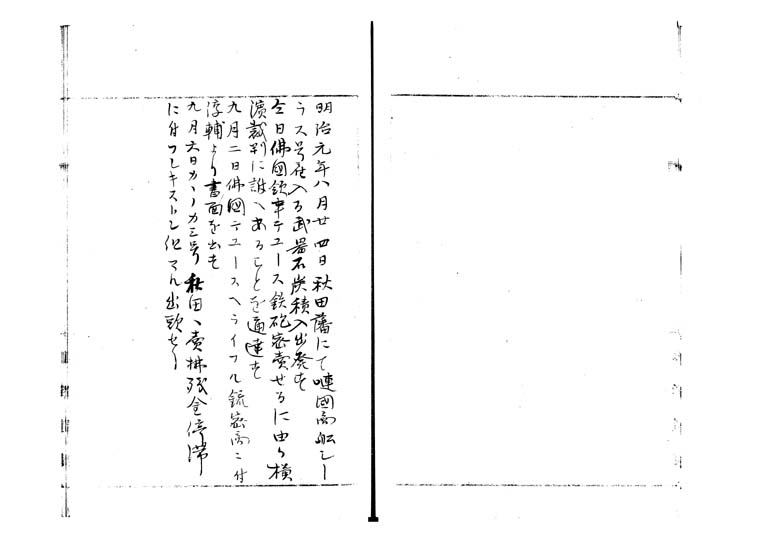 明治元年八月廿四日秋田藩にて嗹國商船シー
ラス号産入る武器石炭積入出発す
仝日佛國領事テユース鉄砲密賣せるに由り横
濱裁判に訴へあることを通達す
九月二日佛國テユースヘライフル銃密商ニ付
淳輔より書面を出す
九月六日カヽノカミ号秋田ヘ賣拂残金停滞
に付フレキストン仁マん出頭せし